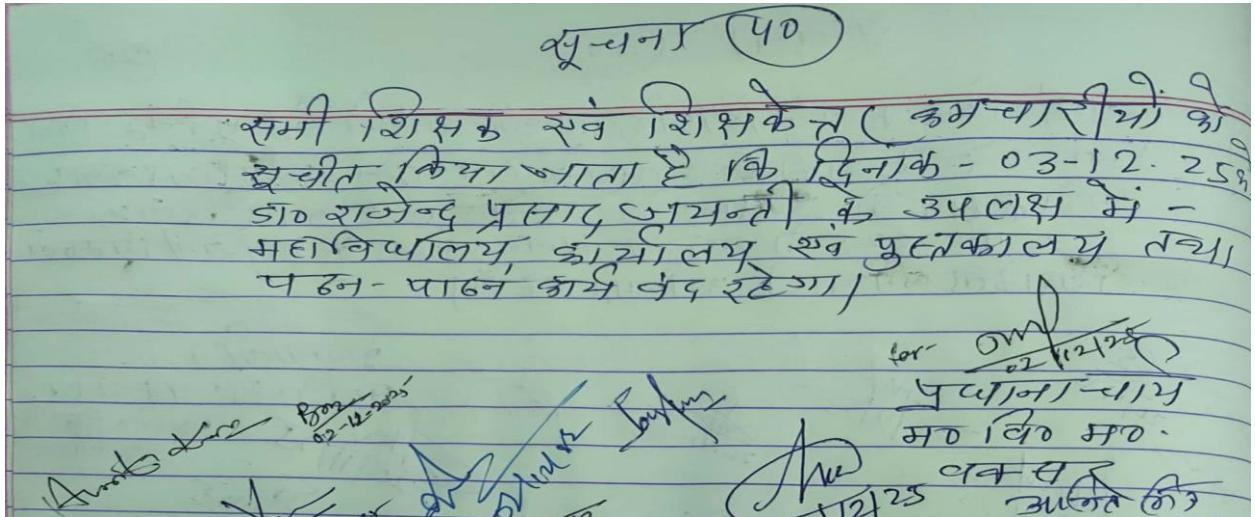 सूचना 40
सभी शिक्षक एवं शिक्षकेत्तर कर्मचारीयों को
सूचीत किया जाता है कि दिनाक - 03-12-25
डा० राजेन्द्र प्रसाद जयन्ती के उपलक्ष में -
महाविधालय, कार्यालय एवं पुस्तकालय तथा
पठन - पाठन कार्य बंद रहेगा।
for-
02/12/25
प्रधानाचार्य
म० वि० म०
बक्सर
02-12-2025
12/25